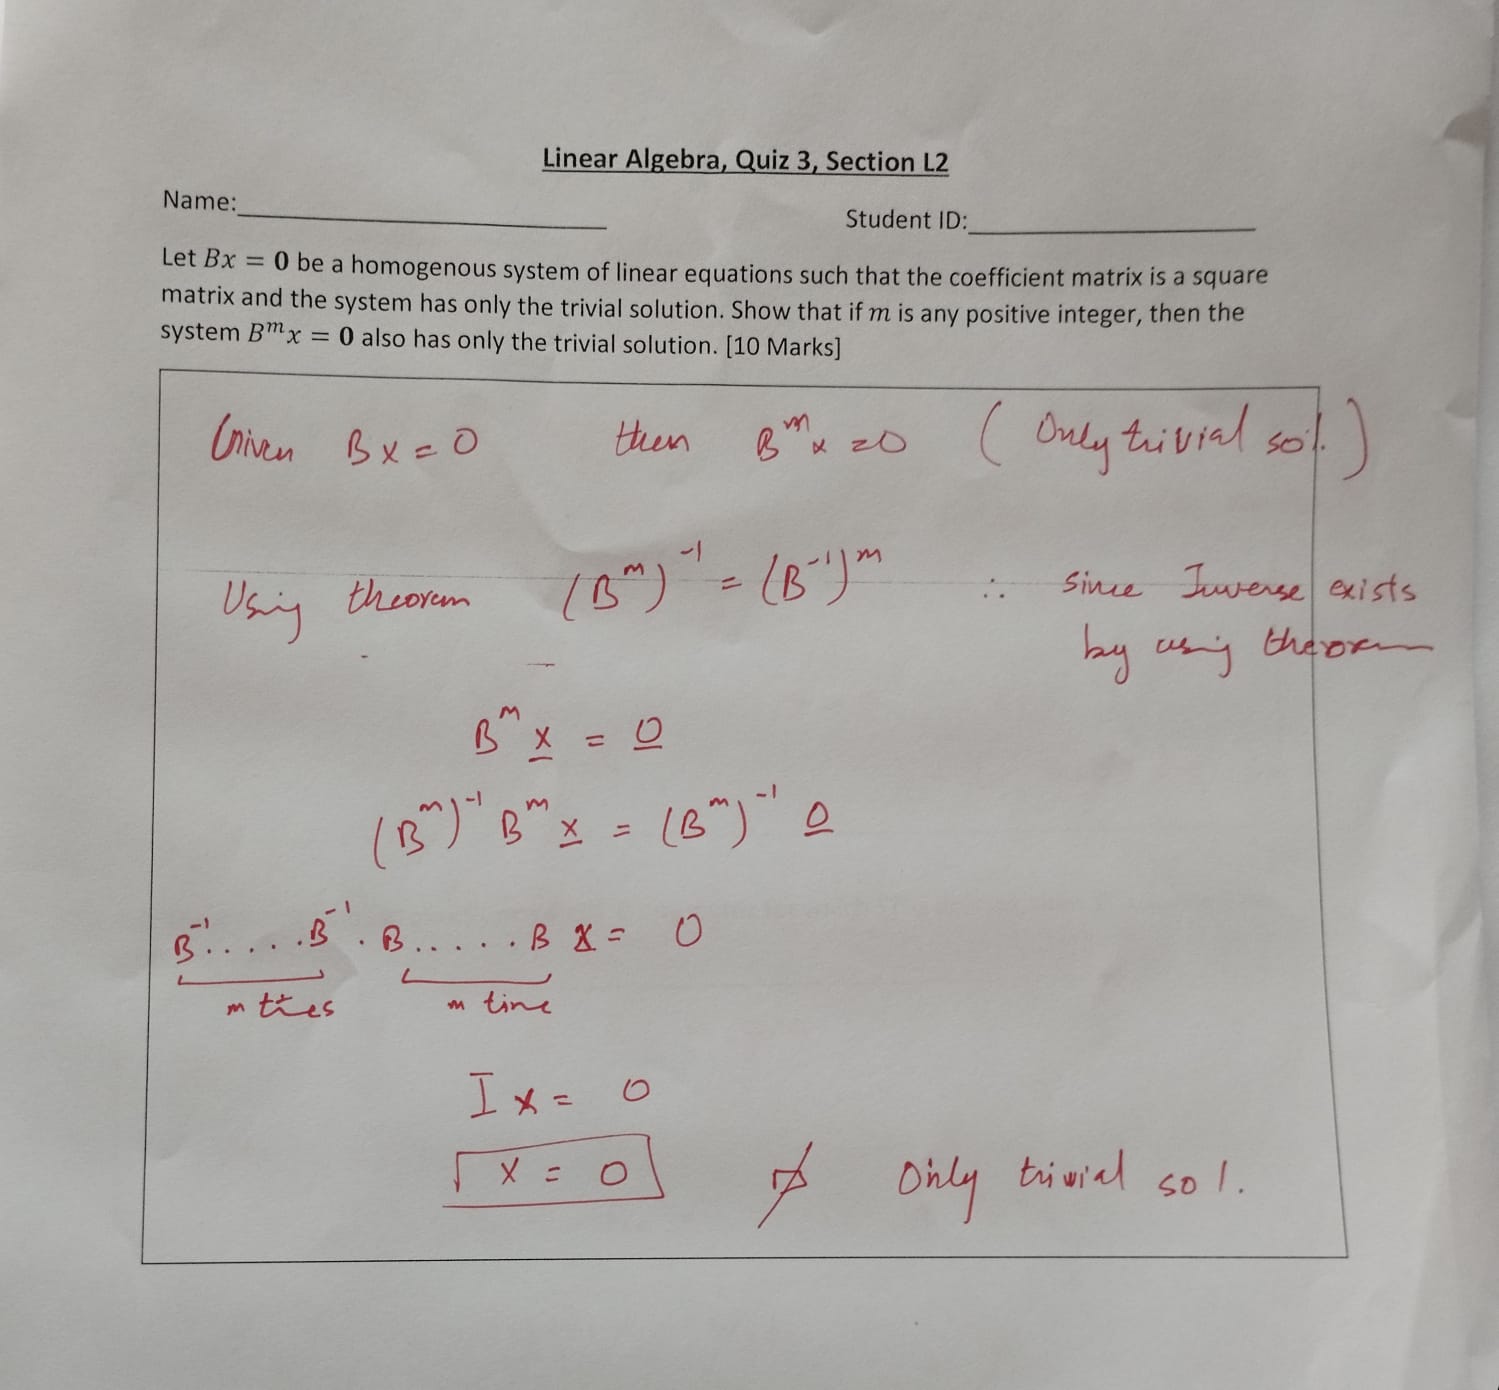 Linear Algebra, Quiz 3, Section L2
Name:
Student ID:
Let Bx = 0 be a homogenous system of linear equations such that the coefficient matrix is a square
matrix and the system has only the trivial solution. Show that if m is any positive integer, then the
system Bᵐx = 0 also has only the trivial solution. [10 Marks]
Given Bx = 0 then Bᵐx = 0 ( Only trivial sol. )
Using theorem (Bᵐ)⁻¹ = (B⁻¹)ᵐ ∴ since Inverse exists
by using theorem
Bᵐ x = 0
(Bᵐ)⁻¹ Bᵐ x = (Bᵐ)⁻¹ 0
B⁻¹.....B⁻¹ . B.....B x = 0
m ties m time
I x = 0
x = 0 Only trivial sol.